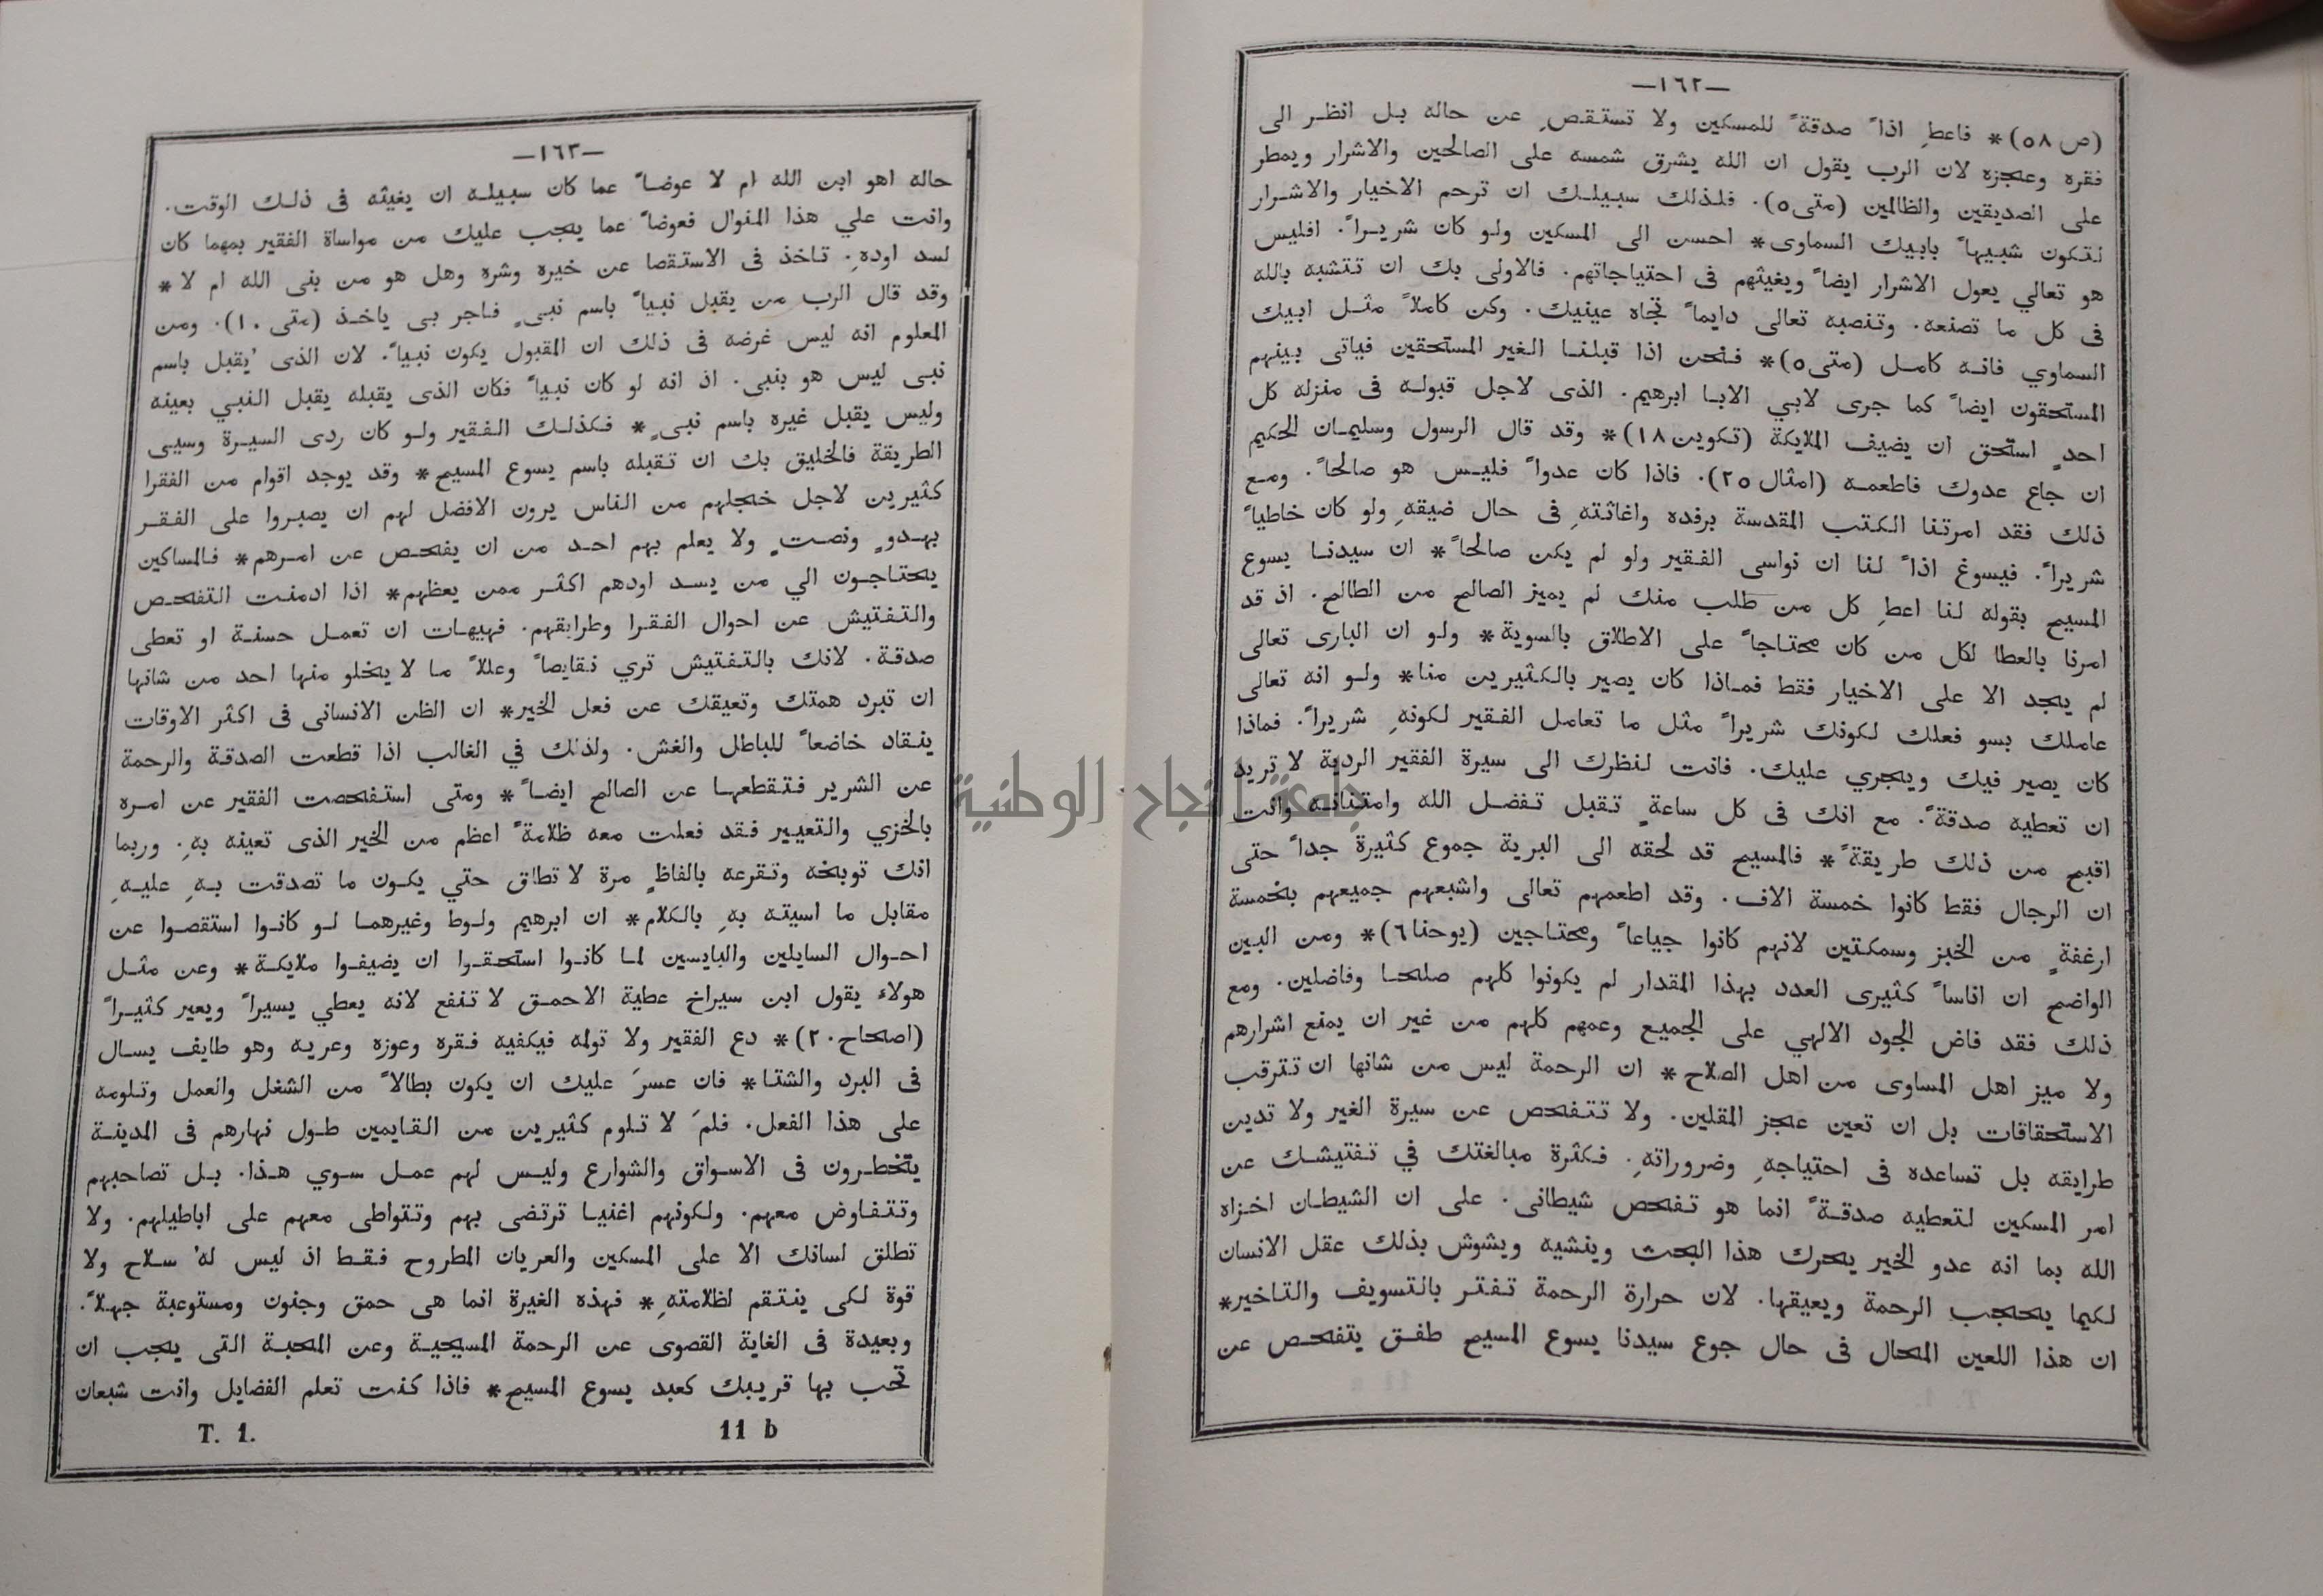 —١٦٢—
(ص ٥٨)* فاعطِ اذاً صدقةً للمسكين ولا تستقصِ عن حاله بل انظر الى
فقره وعجزه لان الرب يقول ان الله يشرق شمسه على الصالحين والاشرار ويمطر
على الصديقين والظالمين (متى ٥). فلذلك سبيلك ان ترحم الاخيار والاشرار
لتكون شبيهاً بابيك السماوى* احسن الى المسكين ولو كان شريراً. افليس
هو تعالي يعول الاشرار ايضاً ويغيثهم فى احتياجاتهم. فالاولى بك ان تتشبه بالله
فى كل ما تصنعه. وتنصبه تعالى دايماً تجاه عينيك. وكن كاملاً مثل ابيك
السماوي فانه كامل (متى ٥)* فنحن اذا قبلنا الغير المستحقين فياتى بينهم
المستحقون ايضاً كما جرى لابي الابا ابرهيم. الذى لاجل قبوله فى منزله كل
احدٍ استحق ان يضيف الملايكة (تكوين ١٨)* وقد قال الرسول وسليمان الحكيم
ان جاع عدوك فاطعمه (امثال ٢٥). فاذا كان عدواً فليس هو صالحاً. ومع
ذلك فقد امرتنا الكتب المقدسة برفده واغاثتهِ فى حال ضيقهِ ولو كان خاطياً
شريراً. فيسوغ اذاً لنا ان نواسى الفقير ولو لم يكن صالحاً* ان سيدنا يسوع
المسيح بقوله لنا اعطِ كل من طلب منك لم يميز الصالح من الطالح. اذ قد
امرنا بالعطا لكل من كان محتاجاً على الاطلاق بالسوية* ولو ان البارى تعالى
لم يجد الا على الاخيار فقط فماذا كان يصير بالكثيرين منا* ولو انه تعالى
عاملك بسو فعلك لكونك شريراً مثل ما تعامل الفقير لكونهِ شريراً. فماذا
كان يصير فيك ويجري عليك. فانت لنظرك الى سيرة الفقير الردية لا تريد
ان تعطيه صدقةً. مع انك فى كل ساعةٍ تقبل تفضل الله وامتنانه وانت
اقبح من ذلك طريقةً* فالمسيح قد لحقه الى البرية جموع كثيرة جداً حتى
ان الرجال فقط كانوا خمسة الاف. وقد اطعمهم تعالى واشبعهم جميعهم بخمسة
ارغفةٍ من الخبز وسمكتين لانهم كانوا جياعاً ومحتاجين (يوحنا ٦)* ومن البين
الواضح ان اناساً كثيرى العدد بهذا المقدار لم يكونوا كلهم صلحا وفاضلين. ومع
ذلك فقد فاض الجود الالهي على الجميع وعمهم كلهم من غير ان يمنع اشرارهم
ولا ميز اهل المساوى من اهل الصلاح* ان الرحمة ليس من شانها ان تترقب
الاستحقاقات بل ان تعين عجز المقلين. ولا تتفحص عن سيرة الغير ولا تدين
طرايقه بل تساعده فى احتياجهِ وضروراتهِ. فكثرة مبالغتك في تفتيشك عن
امر المسكين لتعطيه صدقةً انما هو تفحص شيطانى. على ان الشيطان اخزاه
الله بما انه عدو الخير يحرك هذا البحث وينشيه ويشوش بذلك عقل الانسان
لكيما يحجب الرحمة ويعيقها. لان حرارة الرحمة تفتر بالتسويف والتاخير*
ان هذا اللعين المحال فى حال جوع سيدنا يسوع المسيح طفق يتفحص عن
—١٦٣—
حاله اهو ابن الله ام لا عوضاً عما كان سبيله ان يغيثه فى ذلك الوقت.
وانت علي هذا المنوال فعوضاً عما يجب عليك من مواساة الفقير بمهما كان
لسد اودهِ. تاخذ فى الاستقصا عن خيره وشره وهل هو من بنى الله ام لا*
وقد قال الرب من يقبل نبياً باسم نبىٍ فاجر بى ياخذ (متى ١٠). ومن
المعلوم انه ليس غرضه فى ذلك ان المقبول يكون نبياً. لان الذى يُقبل باسم
نبى ليس هو بنبى. اذ انه لو كان نبياً فكان الذى يقبله يقبل النبي بعينه
وليس يقبل غيره باسم نبىٍ* فكذلك الفقير ولو كان ردى السيرة وسيى
الطريقة فالخليق بك ان تقبله باسم يسوع المسيح* وقد يوجد اقوام من الفقرا
كثيرين لاجل خجلهم من الناس يرون الافضل لهم ان يصبروا على الفقر
بهدوٍ ونصتٍ ولا يعلم بهم احد من ان يفحص عن امرهم* فالمساكين
يحتاجون الي من يسد اودهم اكثر ممن يعظهم* اذا ادمنت التفحص
والتفتيش عن احوال الفقرا وطرايقهم. فهيهات ان تعمل حسنة او تعطى
صدقة. لانك بالتفتيش تري نقايصاً وعللاً ما لا يخلو منها احد من شانها
ان تبرد همتك وتعيقك عن فعل الخير* ان الظن الانسانى فى اكثر الاوقات
ينقاد خاضعاً للباطل والغش. ولذلك في الغالب اذا قطعت الصدقة والرحمة
عن الشرير فتقطعها عن الصالح ايضاً* ومتى استفحصت الفقير عن امره
بالخزي والتعيير فقد فعلت معه ظلامةً اعظم من الخير الذى تعينه بهِ. وربما
انك توبخه وتقرعه بالفاظٍ مرة لا تطاق حتي يكون ما تصدقت بهِ عليهِ
مقابل ما اسيته بهِ بالكلام* ان ابرهيم ولوط وغيرهما لو كانوا استقصوا عن
احوال السايلين والبايسين لما كانوا استحقوا ان يضيفوا ملايكة* وعن مثل
هولاء يقول ابن سيراخ عطية الاحمق لا تنفع لانه يعطي يسيراً ويعير كثيراً
(اصحاح ٢٠)* دع الفقير ولا تولمه فيكفيه فقره وعوزه وعريه وهو طايف يسال
فى البرد والشتا* فان عسرَ عليك ان يكون بطالاً من الشغل والعمل وتلومه
على هذا الفعل. فلمَ لا تلوم كثيرين من القايمين طول نهارهم فى المدينة
يتخطرون فى الاسواق والشوارع وليس لهم عمل سوي هذا. بل تصاحبهم
وتتفاوض معهم. ولكونهم اغنيا ترتضى بهم وتتواطى معهم على اباطيلهم. ولا
تطلق لسانك الا على المسكين والعريان المطروح فقط اذ ليس لهُ سلاح ولا
قوة لكى ينتقم لظلامتهِ* فهذه الغيرة انما هى حمق وجنون ومستوعبة جهلاً.
وبعيدة فى الغاية القصوى عن الرحمة المسيحية وعن المحبة التى يجب ان
تحب بها قريبك كعبد يسوع المسيح* فاذا كنت تعلم الفضايل وانت شبعان
T. 1. 11 b
جامعة النجاح الوطنية